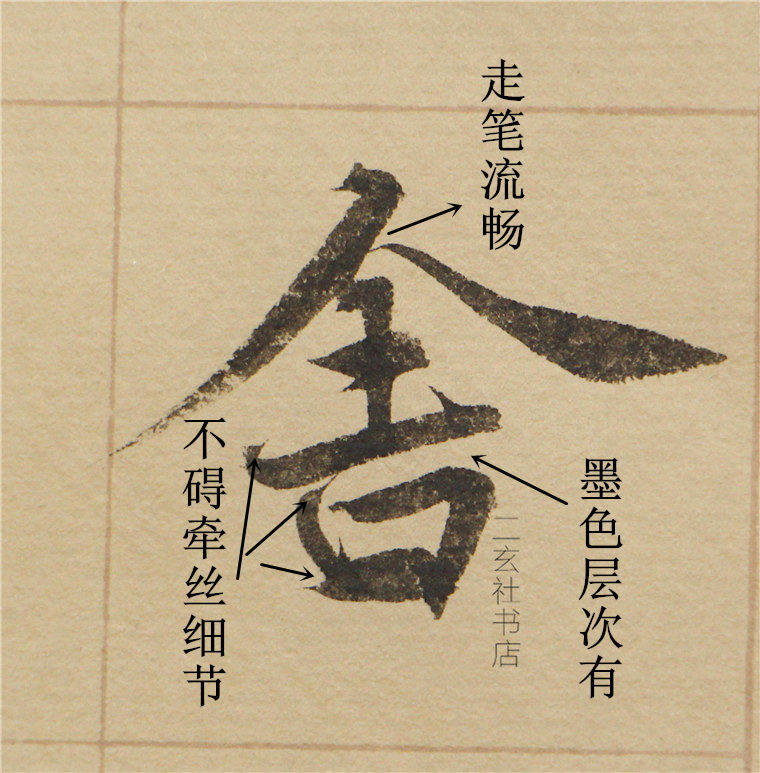 走笔流畅
舍
不碍牵丝细节
墨色层次有
二玄社书店